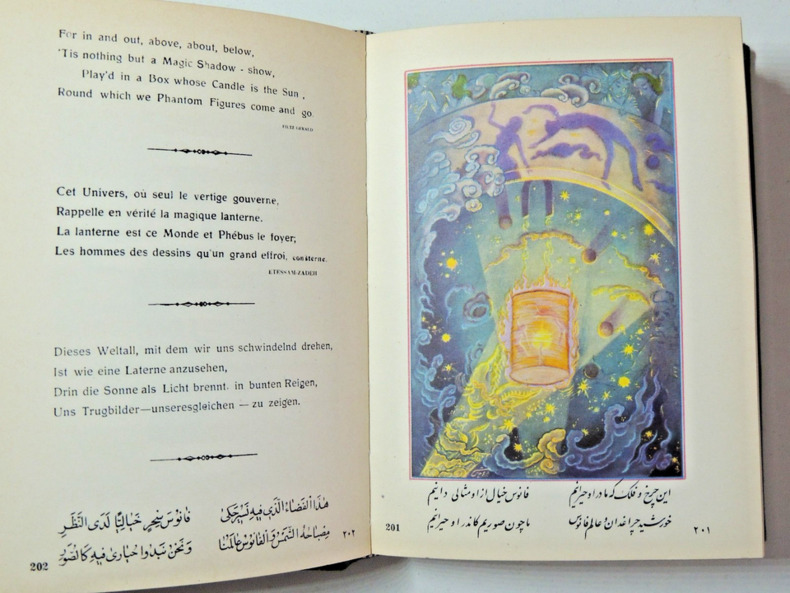 For in and out, above, about, below,
'Tis nothing but a Magic Shadow - show,
Play'd in a Box whose Candle is the Sun ,
Round which we Phantom Figures come and go.
FITZ GERALD
Cet Univers, où seul le vertige gouverne,
Rappelle en vérité la magique lanterne.
La lanterne est ce Monde et Phébus le foyer;
Les hommes des dessins qu'un grand effroi, consterne.
ETESSAM-ZADEH
Dieses Weltall, mit dem wir uns schwindelnd drehen,
Ist wie eine Laterne anzusehen,
Drin die Sonne als Licht brennt. in bunten Reigen,
Uns Trugbilder—unseresgleichen — zu zeigen.
هذا الفضاء الذي فيه نسير حكى فانوس سحر خياليا لدى النظر
مصباحه الشمس والفانوس عالمنا ونحن نبدو حيارى فيه كالصور
۲۰۲
202
این چرخ و فلک که ما در او حیرانیم فانوس خیال از او مثالی دانیم
خورشید چراغدان و عالم فانوس ما چون صوریم کاندر او حیرانیم
۲۰۱
201